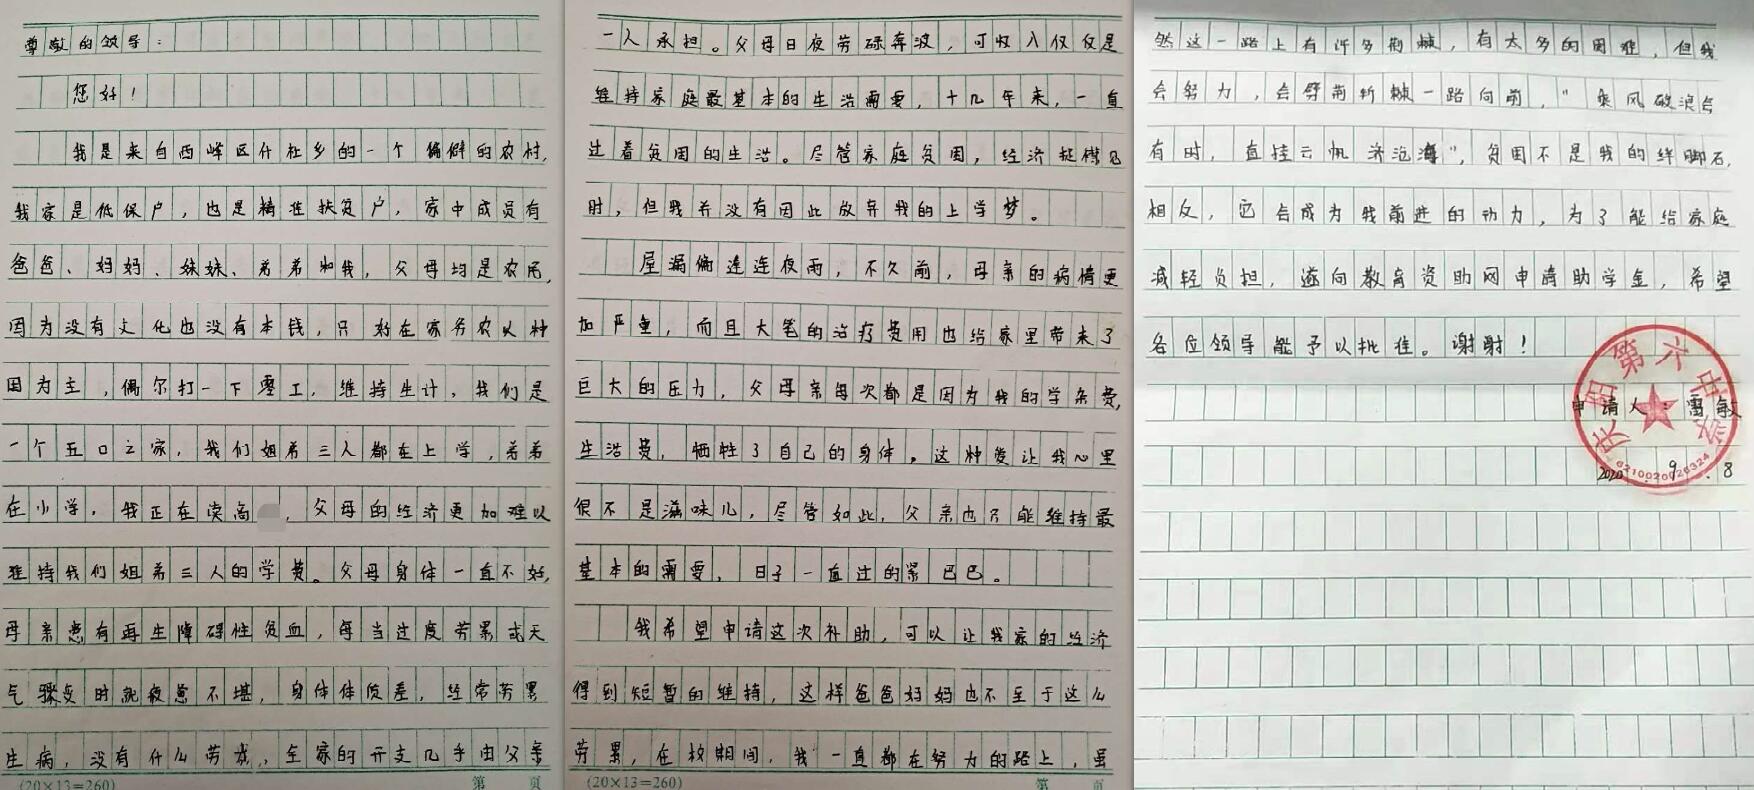 尊敬的领导：
您好！
我是来自西峰区什社乡的一个偏僻的农村，
我家是低保户，也是精准扶贫户，家中成员有
爸爸、妈妈、妹妹、弟弟和我，父母均是农民，
因为没有文化也没有本钱，只好在家务农以种
田为主，偶尔打一下零工，维持生计，我们是
一个五口之家，我们姐弟三人都在上学，弟弟
在小学，我正在读高，父母的经济更加难以
维持我们姐弟三人的学费。父母身体一直不好，
母亲患有再生障碍性贫血，每当过度劳累或天
气骤变时就疲惫不堪，身体体质差，经常劳累
生病，没有什么劳动，全家的开支几乎由父亲
(20×13=260) 第 页
一人承担。父母日夜劳碌奔波，可收入仅仅是
维持家庭最基本的生活需要，十几年来，一直
过着贫困的生活。尽管家庭贫困，经济拮据见
时，但我并没有因此放弃我的上学梦。
屋漏偏逢连夜雨，不久前，母亲的病情更
加严重，而且大笔的治疗费用也给家里带来了
巨大的压力，父母亲每次都是因为我的学杂费，
生活费，牺牲了自己的身体。这种爱让我心里
很不是滋味儿，尽管如此，父亲也只能维持最
基本的需要，日子一直过的紧巴巴。
我希望申请这次补助，可以让我家的经济
得到短暂的维持，这样爸爸妈妈也不至于这么
劳累，在校期间，我一直都在努力的路上，虽
(20×13=260) 第 页
然这一路上有许多荆棘，有太多的困难，但我
会努力，会劈荆斩棘一路向前，"乘风破浪会
有时，直挂云帆济沧海"，贫困不是我的绊脚石，
相反，它会成为我前进的动力，为了能给家庭
减轻负担，遂向教育资助网申请助学金，希望
各位领导能予以批准。谢谢！
庆阳第六中学
申请人：雷敏
2020.9.8
6210020026324